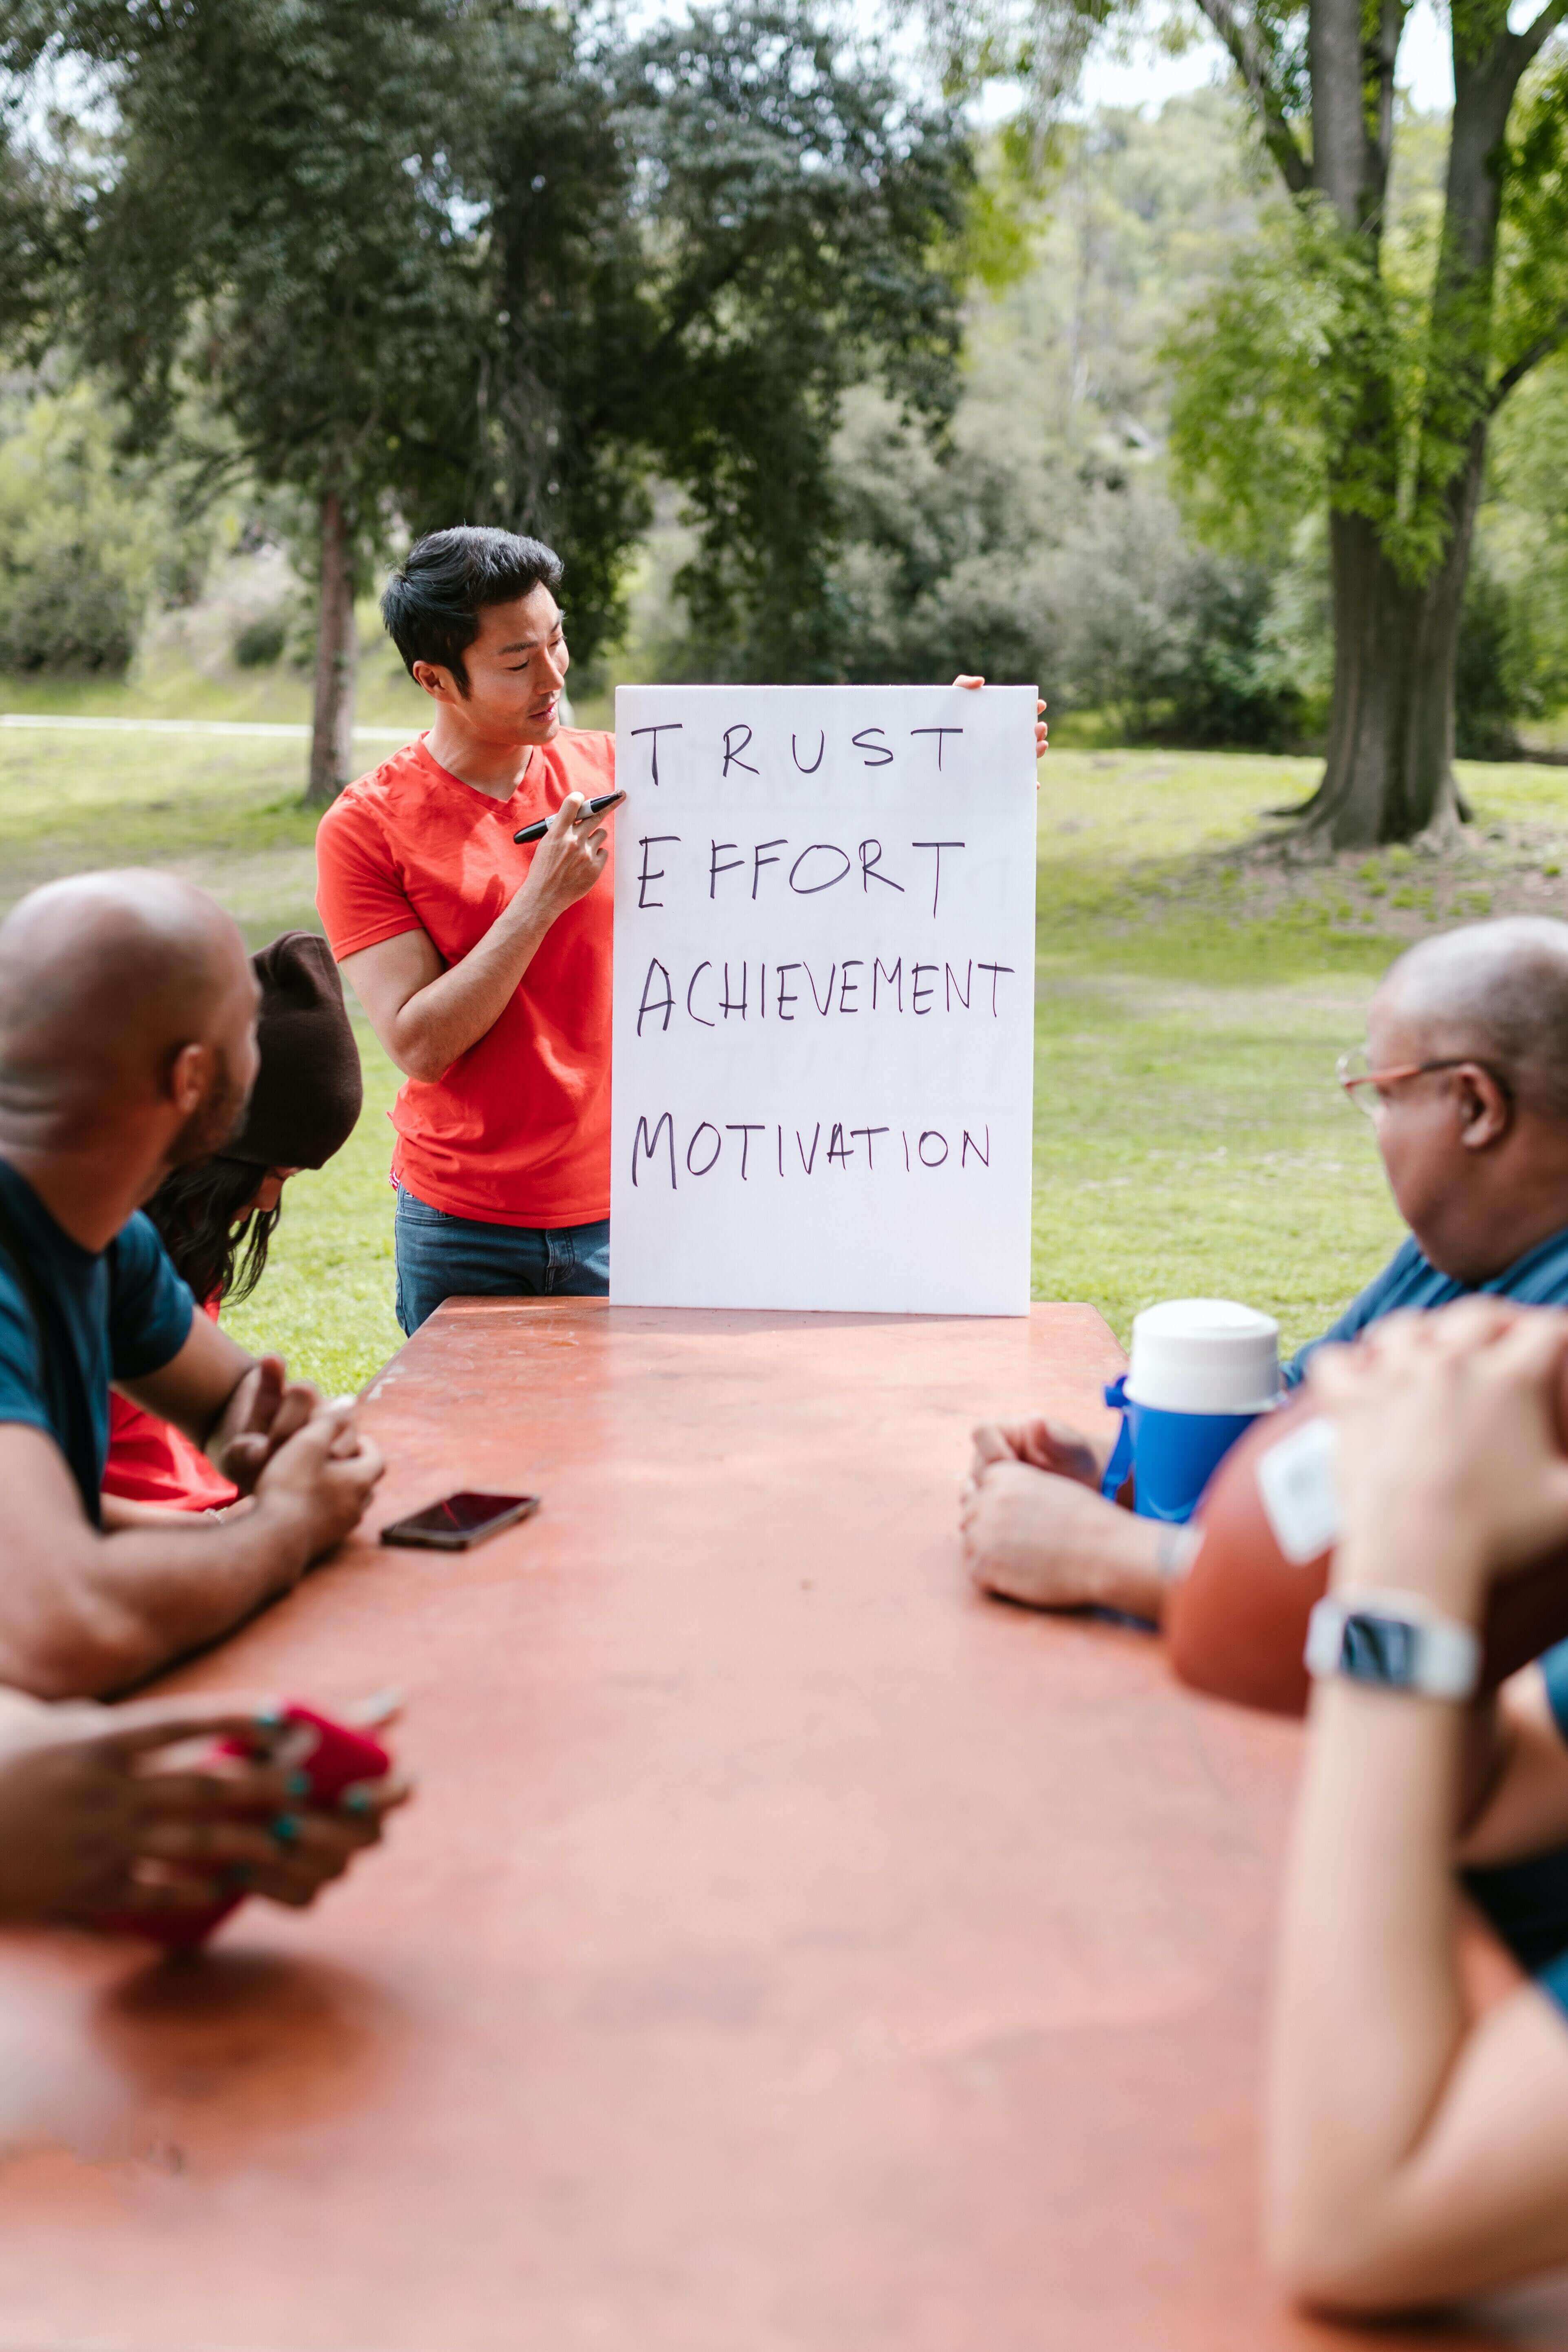 TRUST
EFFORT
ACHIEVEMENT
MOTIVATION